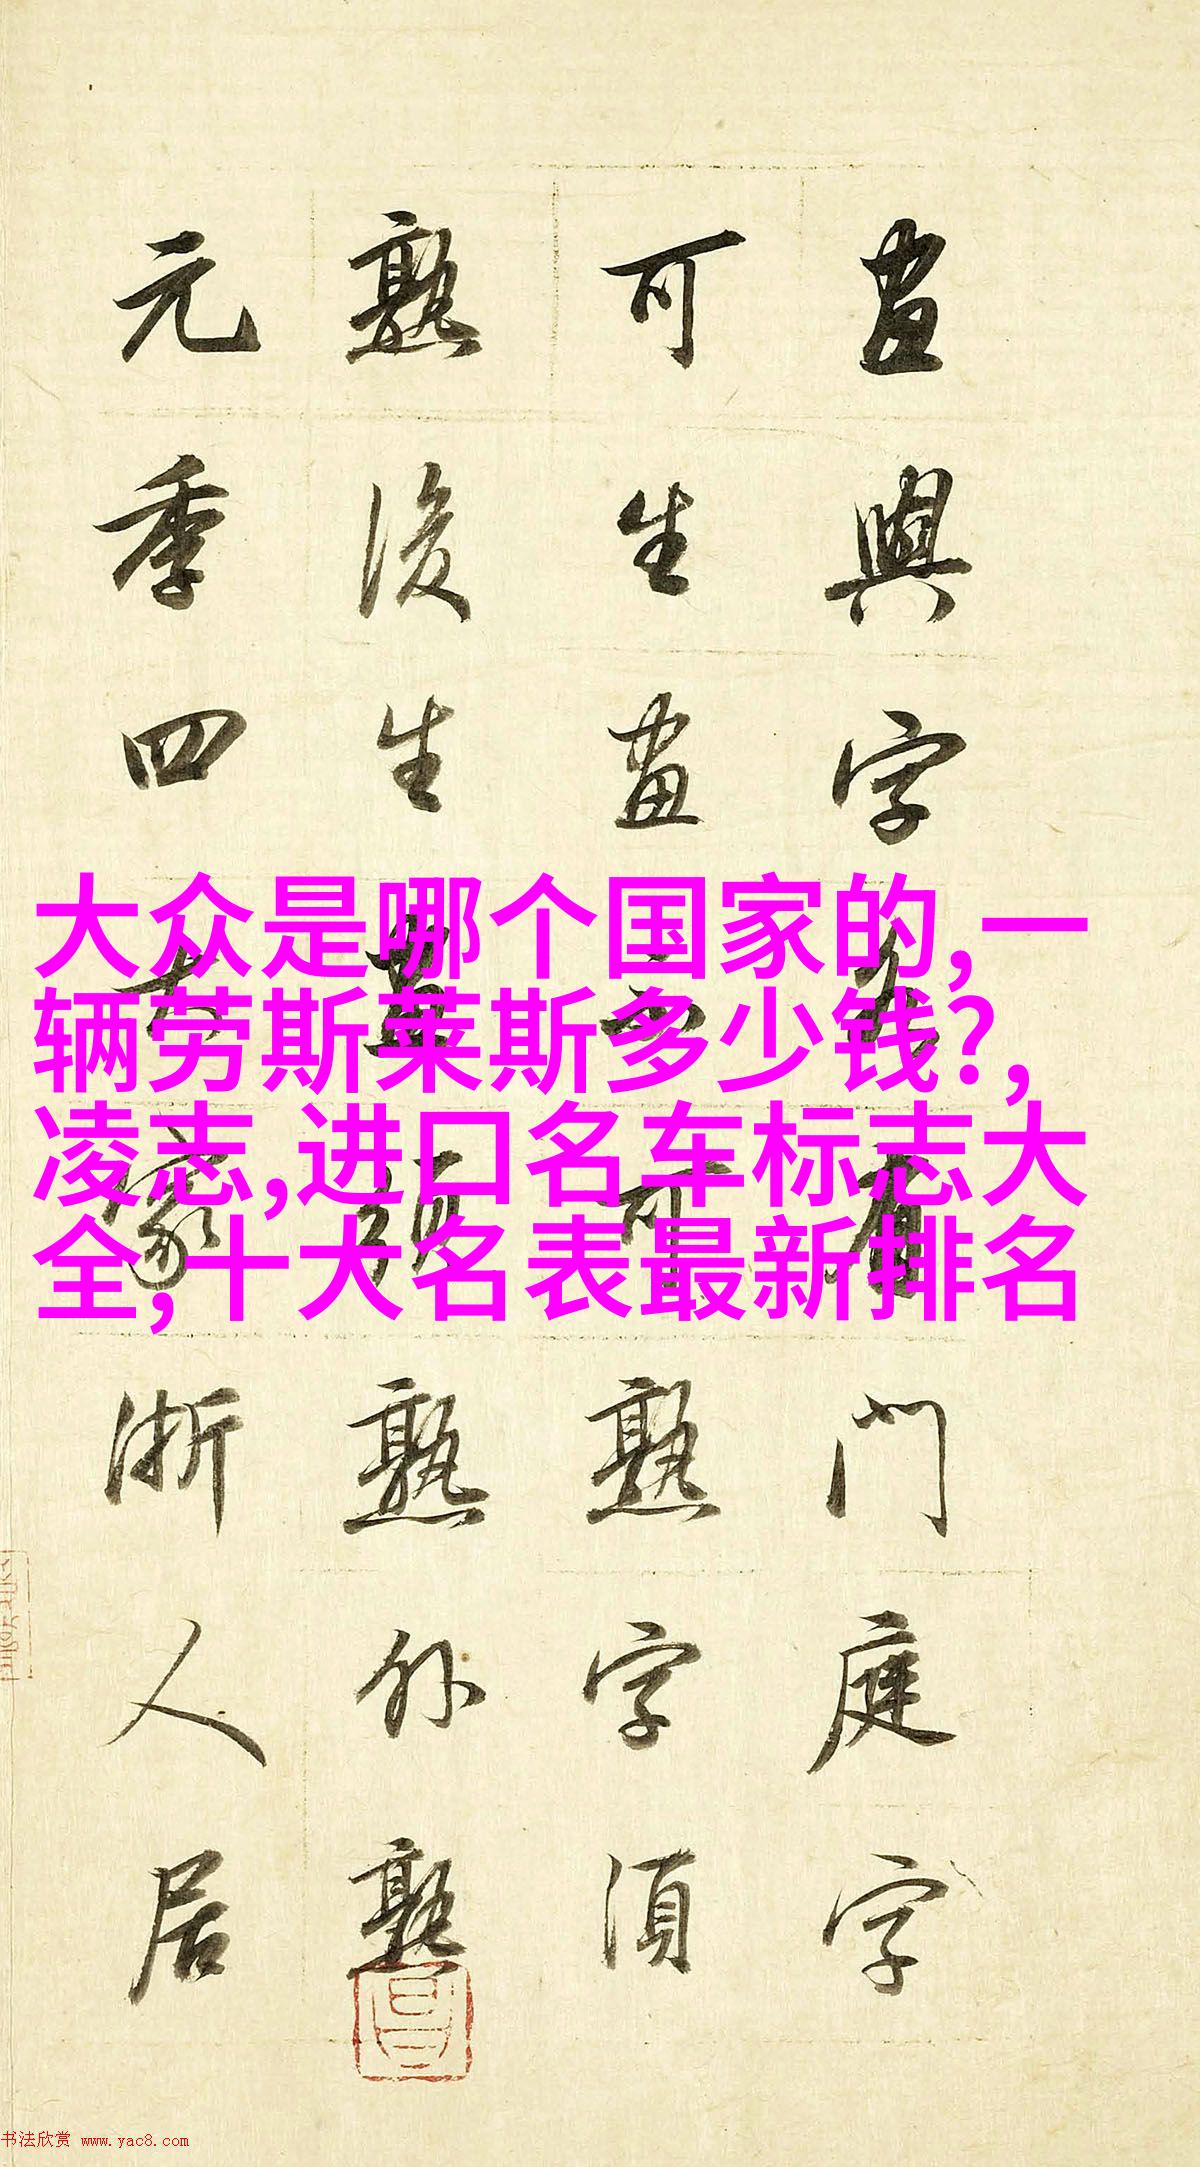 畫與字各有門庭字
可生畫不可熟字須
熟後生畫須熟外熟
元季四大家浙人居
大众是哪个国家的,一
辆劳斯莱斯多少钱?,
凌志,进口名车标志大
全,十大名表最新排名
书法欣赏 www.yac8.com